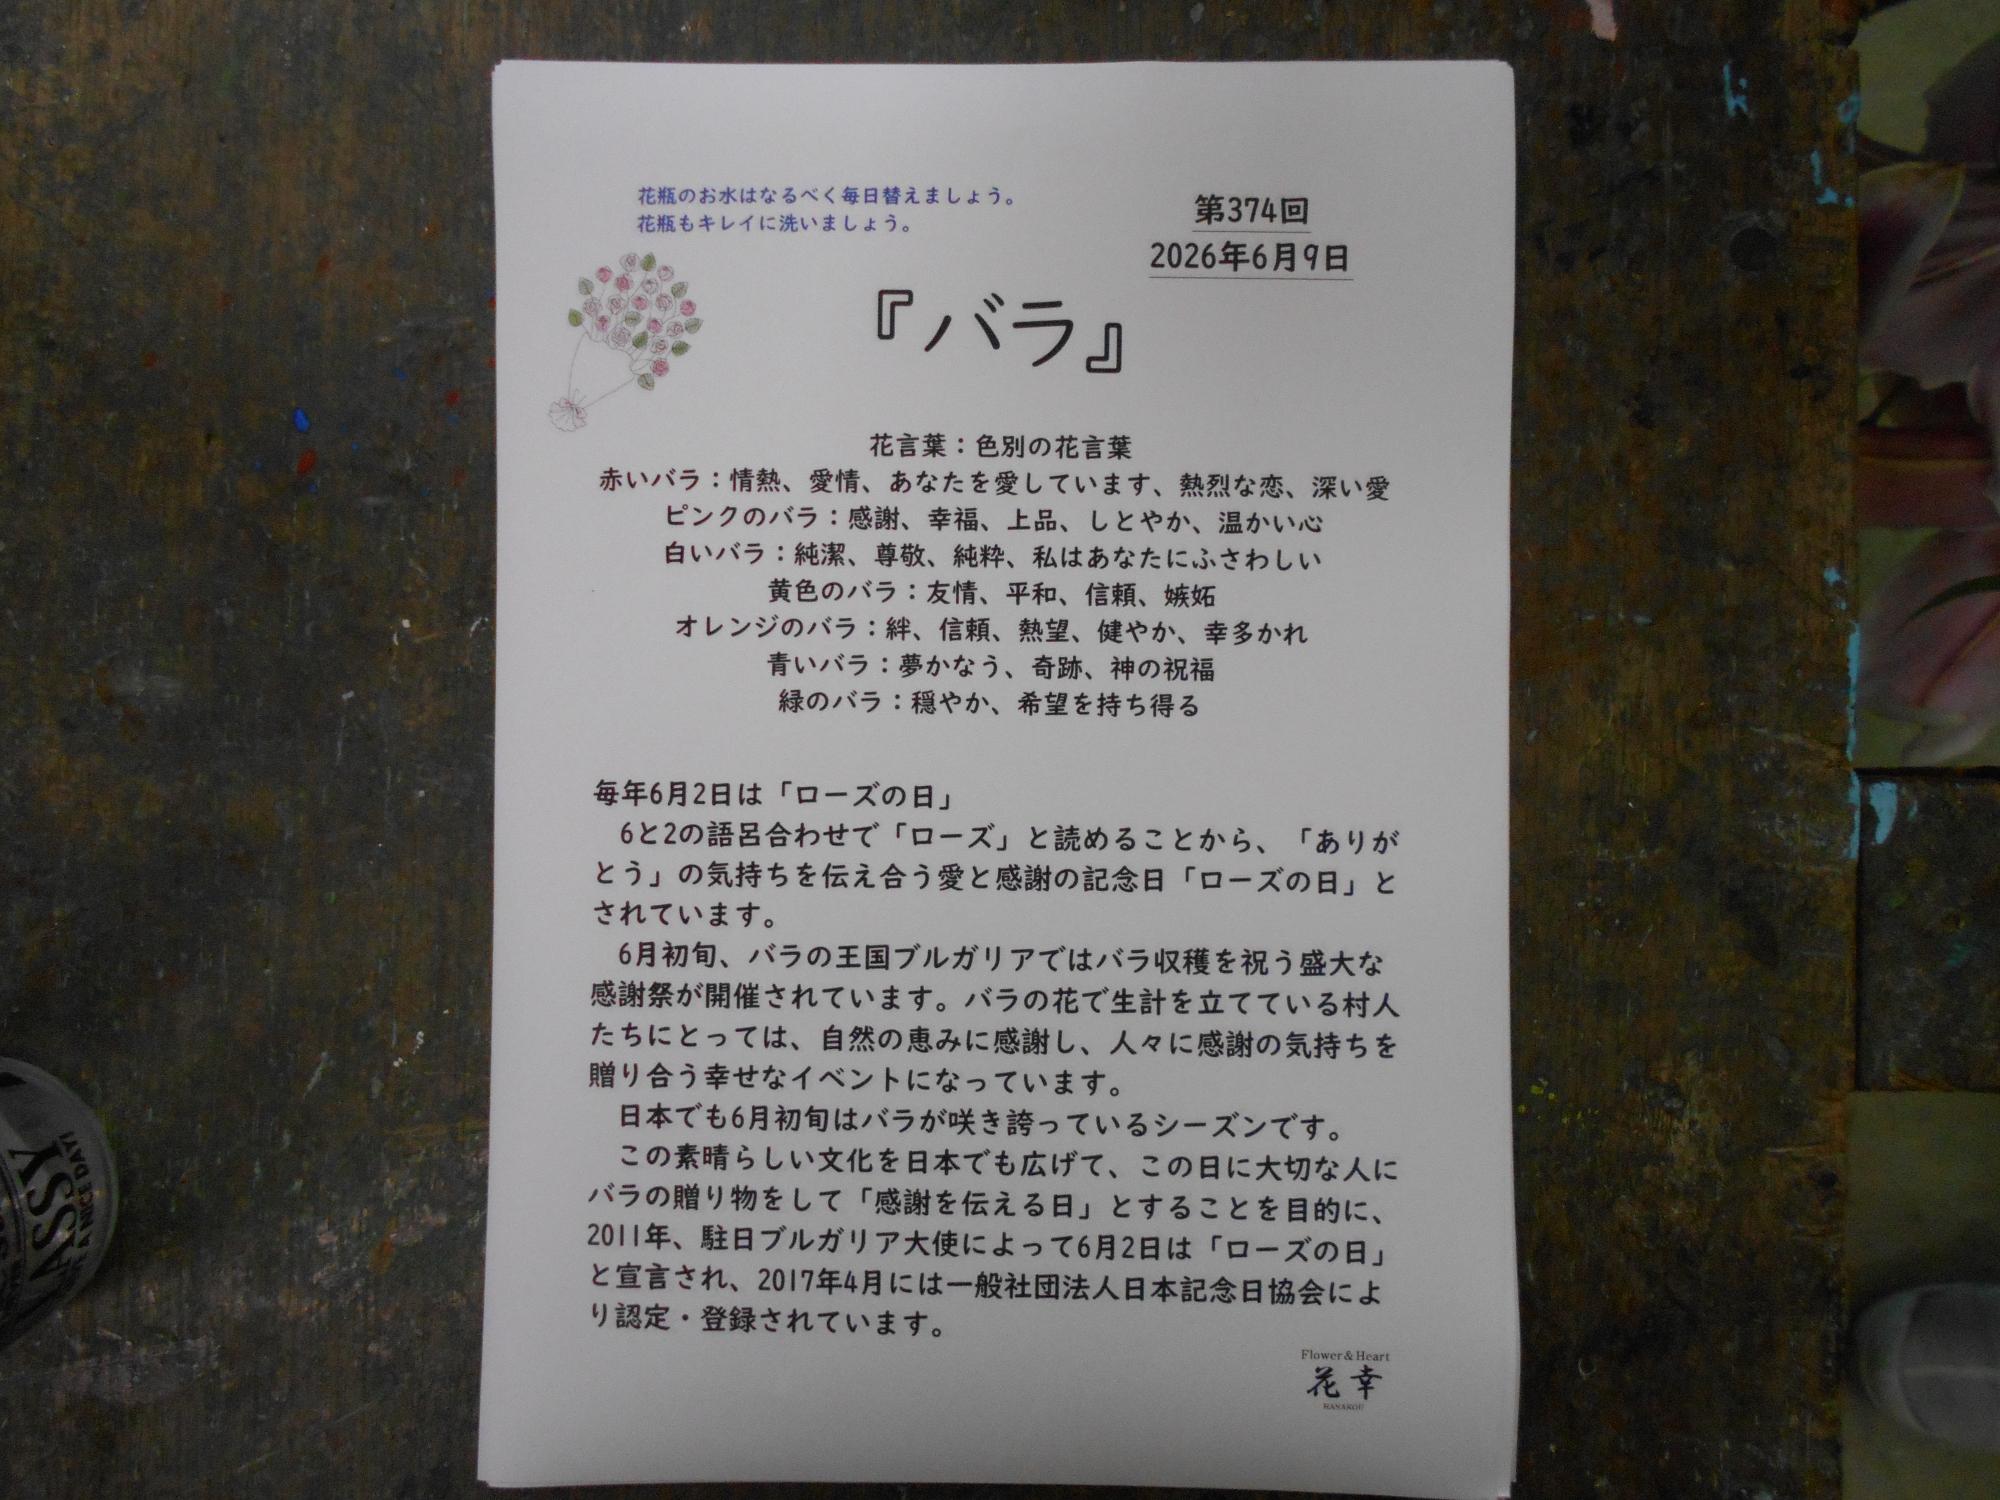 花瓶のお水はなるべく毎日替えましょう。
花瓶もキレイに洗いましょう。
第374回
2026年6月9日
『バラ』
花言葉：色別の花言葉
赤いバラ：情熱、愛情、あなたを愛しています、熱烈な恋、深い愛
ピンクのバラ：感謝、幸福、上品、しとやか、温かい心
白いバラ：純潔、尊敬、純粋、私はあなたにふさわしい
黄色のバラ：友情、平和、信頼、嫉妬
オレンジのバラ：絆、信頼、熱望、健やか、幸多かれ
青いバラ：夢かなう、奇跡、神の祝福
緑のバラ：穏やか、希望を持ち得る
毎年6月2日は「ローズの日」
6と2の語呂合わせで「ローズ」と読めることから、「ありが
とう」の気持ちを伝え合う愛と感謝の記念日「ローズの日」と
されています。
6月初旬、バラの王国ブルガリアではバラ収穫を祝う盛大な
感謝祭が開催されています。バラの花で生計を立てている村人
たちにとっては、自然の恵みに感謝し、人々に感謝の気持ちを
贈り合う幸せなイベントになっています。
日本でも6月初旬はバラが咲き誇っているシーズンです。
この素晴らしい文化を日本でも広げて、この日に大切な人に
バラの贈り物をして「感謝を伝える日」とすることを目的に、
2011年、駐日ブルガリア大使によって6月2日は「ローズの日」
と宣言され、2017年4月には一般社団法人日本記念日協会によ
り認定・登録されています。
Flower&Heart
花幸
HANAKOU
ASSY
A NICE DAY!